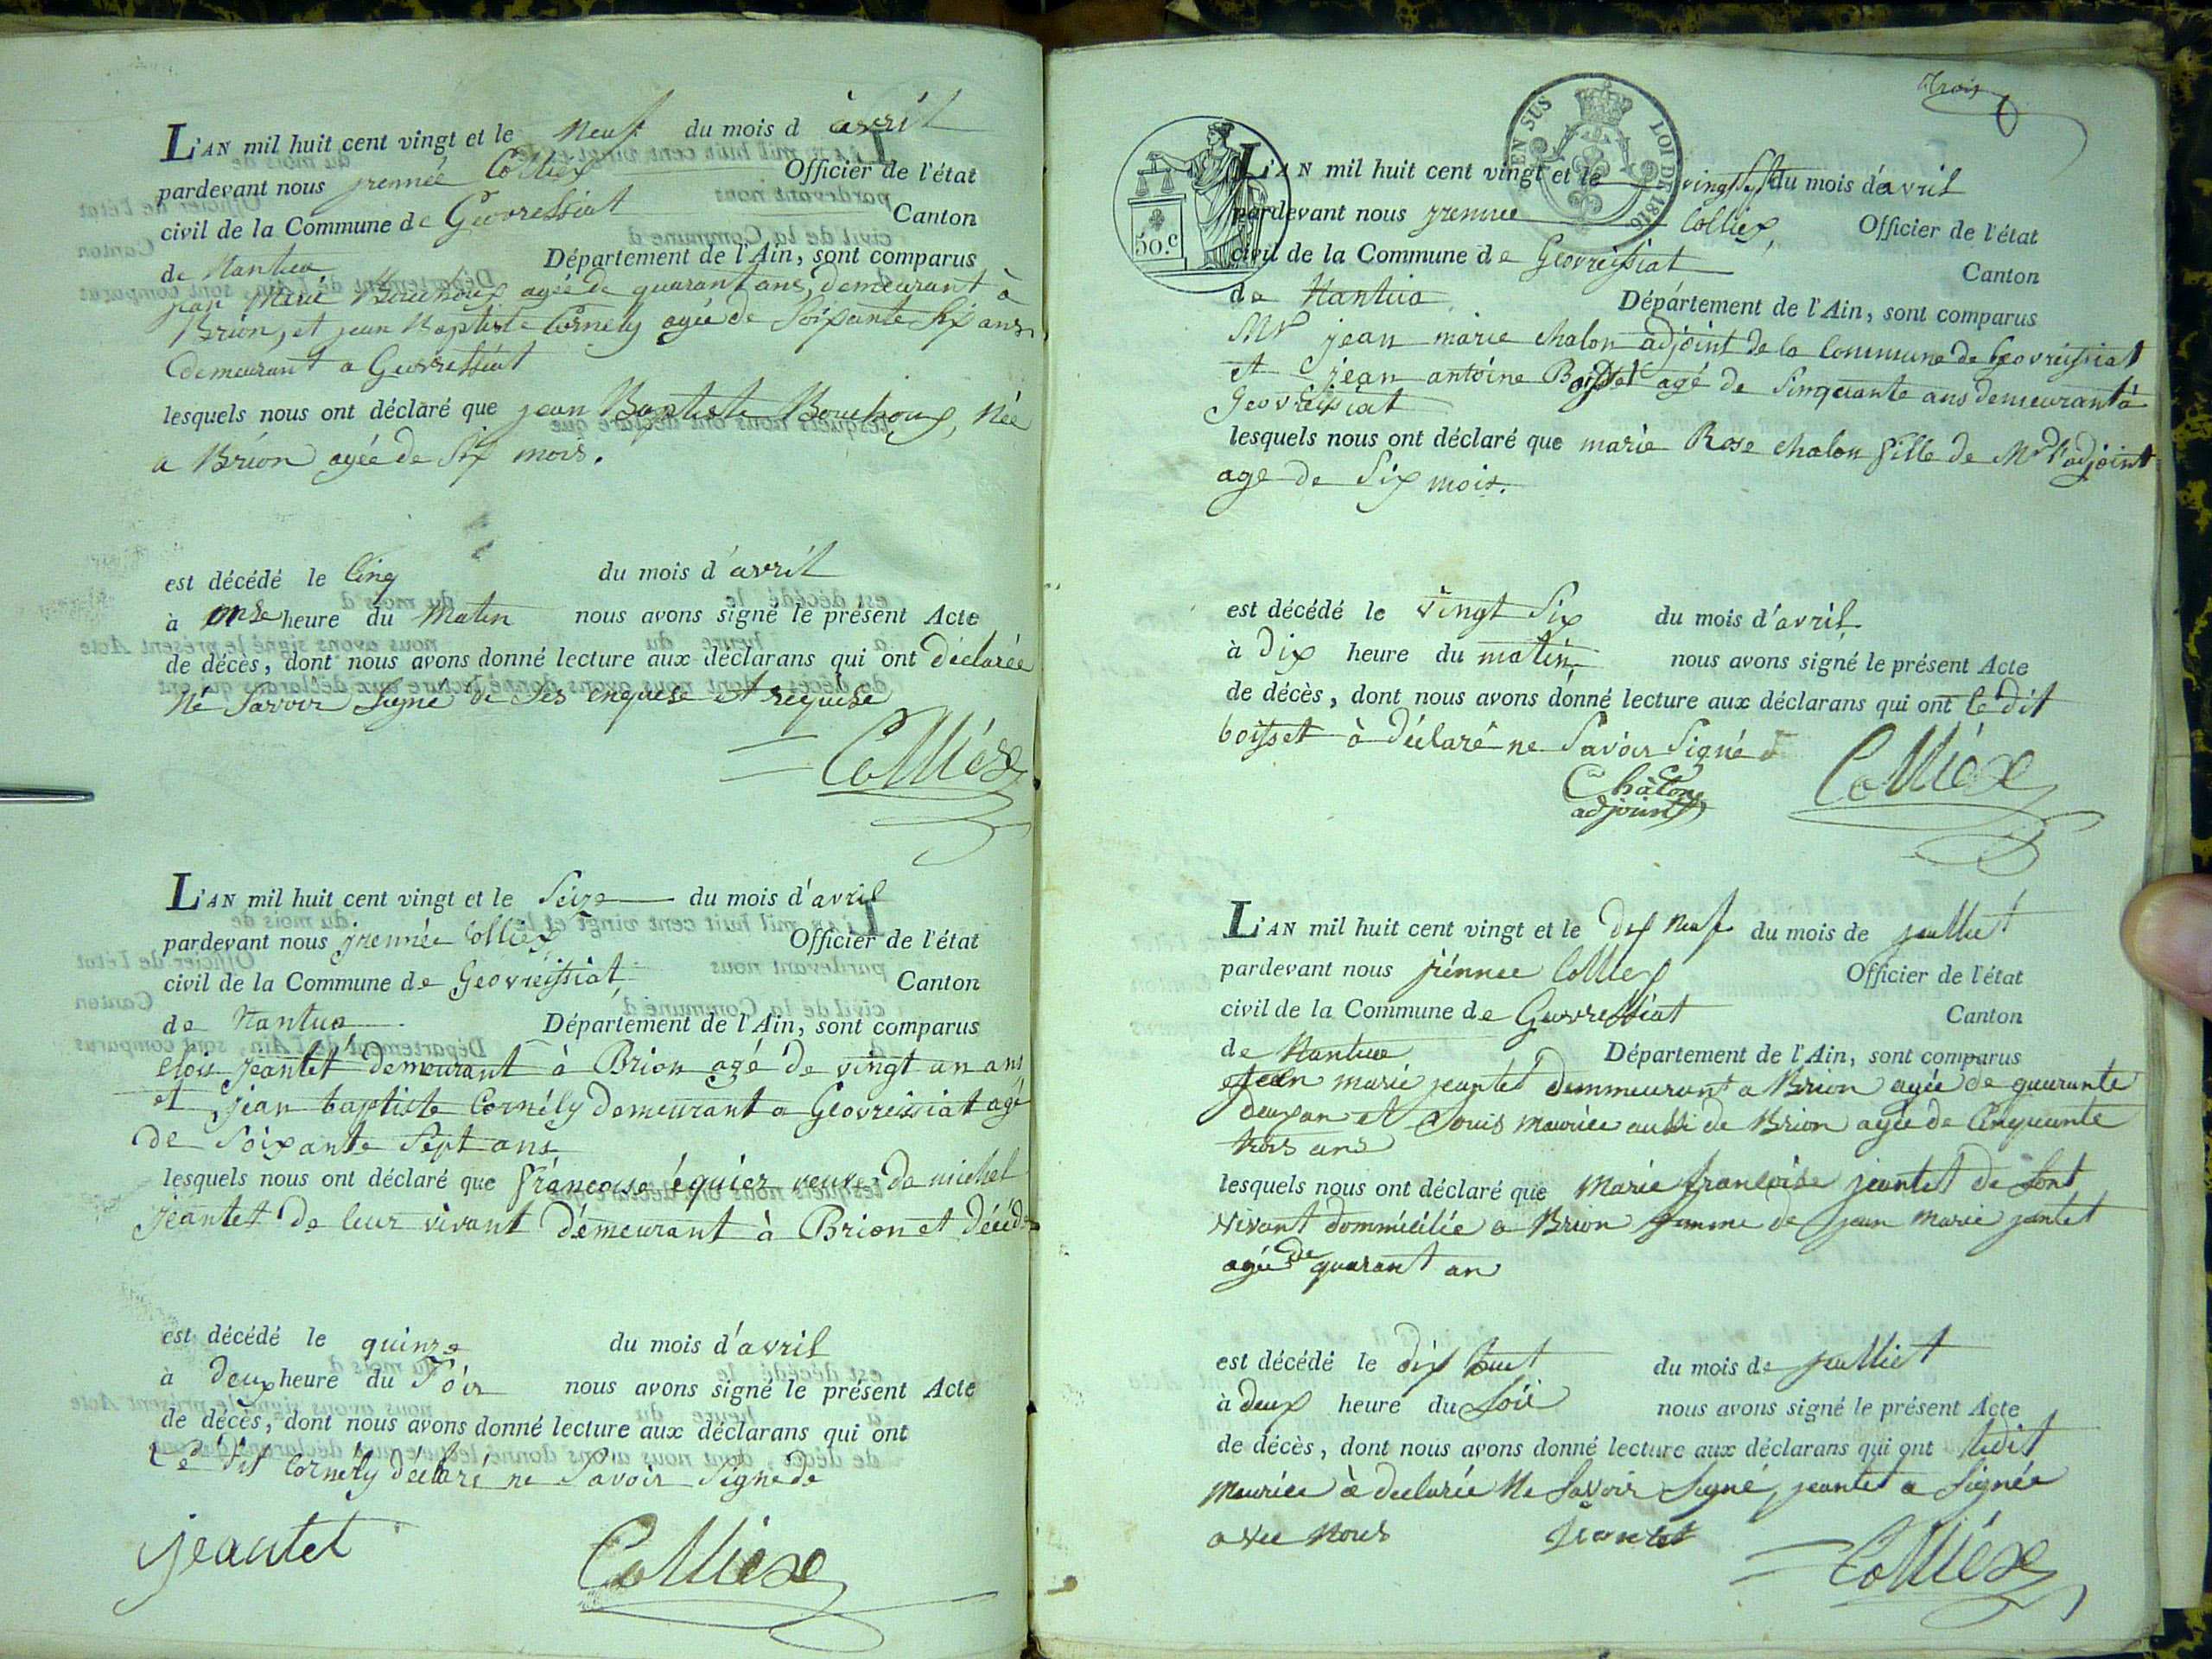 L'AN mil huit cent vingt et le Neuf du mois d avril
pardevant nous jrennée Colliex Officier de l'état
civil de la Commune de Geovressiat Canton
de Nantua Département de l'Ain, sont comparus
jean Marie Bouchoux agée de quarant ans, demeurant à
Brion, et jean Baptiste Cornely agée de Soixante Six ans
demeurant a Geovressiat
lesquels nous ont déclaré que jean Baptiste Bouchoux, Née
a Brion agée de Six mois.
est décédé le Cinq du mois d'avril
à onse heure du Matin nous avons signé le présent Acte
de décès, dont nous avons donné lecture aux déclarans qui ont déclarée
Né Savoir Signé de Ses enquise et requise
Colliéx
L'AN mil huit cent vingt et le Seize du mois d'avril
pardevant nous jrennée Colliex Officier de l'état
civil de la Commune de Geovreissiat Canton
de Nantua Département de l'Ain, sont comparus
elois jeantet demeurant à Brion agé de vingt un ans
et jean baptiste Cornély demeurant a Geovreissiat agé
de Soixante Sept ans
lesquels nous ont déclaré que françoise équier veuve de michel
jeantet de leur vivant démeurant à Brion et décéd
est décédé le quinze du mois d'avril
à deux heure du Soir nous avons signé le présent Acte
de décès, dont nous avons donné lecture aux déclarans qui ont
Le dit Cornély déclaré ne Savoir Signé de
jeantet Colliex
trois
EN SUS LOI DE 1816
50.c
L'AN mil huit cent vingt et le vingt Sept du mois d'avril
pardevant nous jrennee Colliex Officier de l'état
civil de la Commune de Geovreissiat Canton
de Nantua Département de l'Ain, sont comparus
Mr jean marie chalon adjoint de la Commune de Geovreissiat
et jean antoine Boisset agé de Sinquante ans demeurant à
Geovreissiat
lesquels nous ont déclaré que marie Rose chalon fille de Mr l'adjoint
age de Six mois.
est décédé le vingt Six du mois d'avril
à Dix heure du matin nous avons signé le présent Acte
de décès, dont nous avons donné lecture aux déclarans qui ont le dit
boisset à Déclaré ne Savoir Signé
Châlon
adjoint Colliex
L'AN mil huit cent vingt et le dix Neuf du mois de juilliet
pardevant nous jrénnee Colliex Officier de l'état
civil de la Commune de Geovressiat Canton
de Nantua Département de l'Ain, sont comparus
jean marie jeantet demmeurant a Brion agée de quarante
deux an et Louis Maurice aussi de Brion agée de Cinquante
trois ans
lesquels nous ont déclaré que Marie françoise jeantet de Sont
vivant dommicilie a Brion famme de jean Marie jantet
agée de quarant an
est décédé le dix huit du mois de juilliet
à deux heure du Soir nous avons signé le présent Acte
de décès, dont nous avons donné lecture aux déclarans qui ont ledit
Maurice à declarée Ne Savoir Signé, jeantet a Signée
avec Nous Jeantet
Colliéx